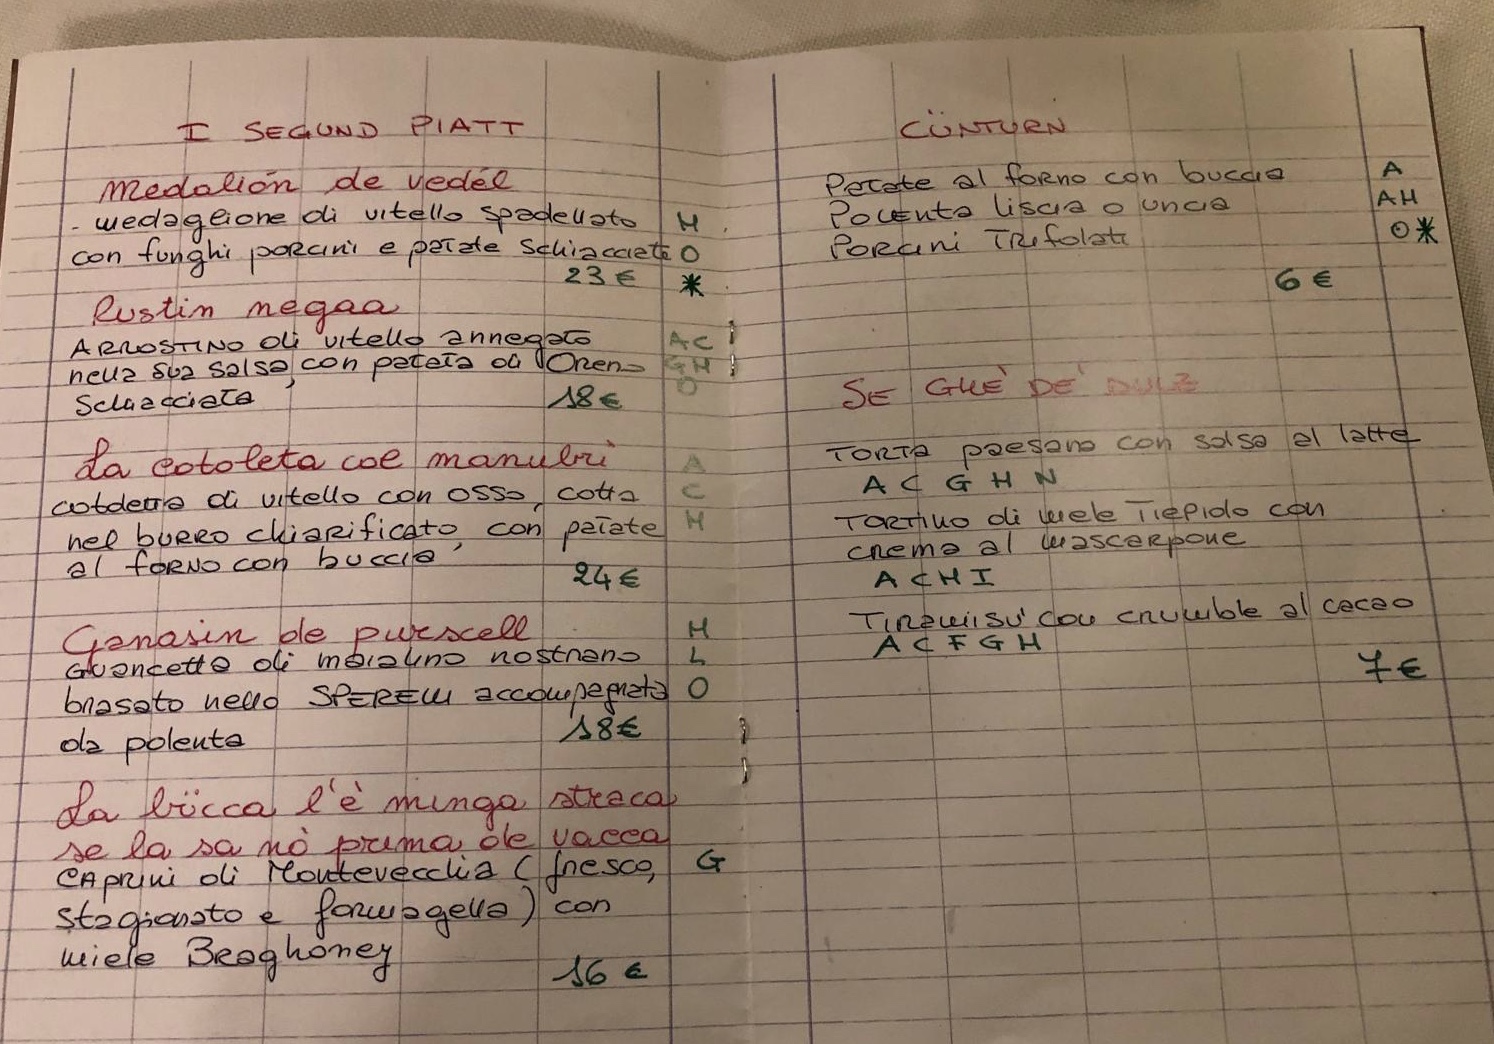 I SEGUND PIATT
Medalión de vedél
- medaglione di vitello spadellato H
con funghi porcini e patate schiacciate O
23 € *
Rustin negaa
ARROSTINO di vitello annegato AC
nella sua salsa, con patata di Oreno GH
Schiacciata O
18 €
La cotoleta col manubri A
cotoletta di vitello con osso, cotta C
nel burro chiarificato, con patate H
al forno con buccia
24 €
Ganasin de purscell H
Guancetta di maialino nostrano L
brasato nello SPERELLI accompagnata O
da polenta 18€
La bücca l'è minga straca
se la sa nò prima de vacca
CAprini di Montevecchia (fresco, G
stagionato e formagella) con
miele Braghoney
16 €
CÜNTURN
Patate al forno con buccia A
Polenta liscia o uncia AH
Porcini Trifolati O*
6 €
SE GHE' DE' DULZ
TORTA paesana con salsa al latte
A C G H N
TORTINO di mele Tiepido con
crema al mascarpone
A C H I
Tiramisu' con crumble al cacao
A C F G H
7 €